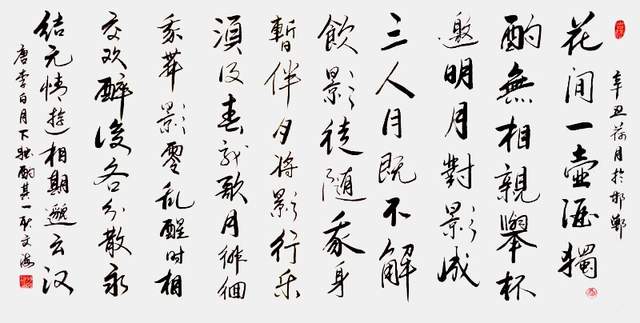 辛丑荷月於邯鄲
花間一壺酒獨
酌無相親舉杯
邀明月對影成
三人月既不解
飲影徒随我身
暫伴月将影行乐
須及春我歌月徘徊
我舞影零乱醒时相
交欢醉後各分散永
结无情遊相期邈云汉
唐李白月下独酌其一